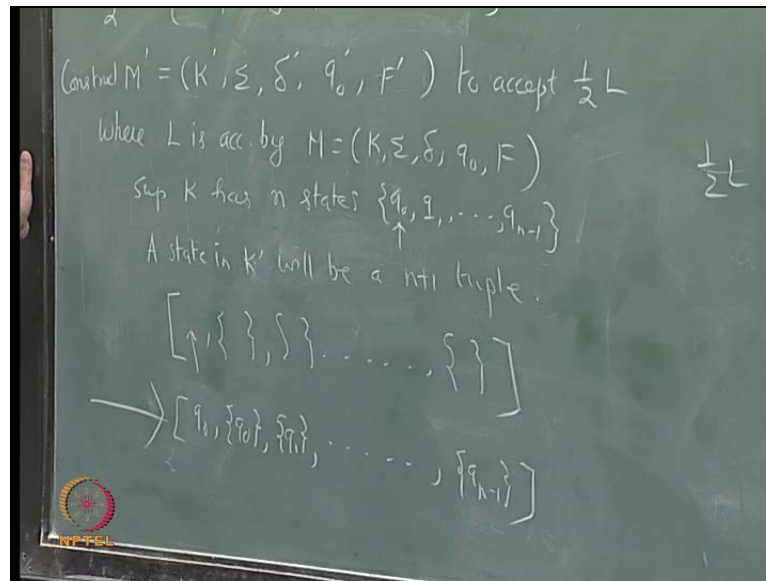 2
Construct M' = (K', Σ, δ', q₀', F') to accept ½ L
where L is acc. by M = (K, Σ, δ, q₀, F)
½ L
Sup K has n states {q₀, q₁, ..., qₙ₋₁}
↑
A state in K' will be a n+1 tuple.
[↑, { }, { } ......, { }]
→ [q₀, {q₀}, {q₁}, ......, {qₙ₋₁}]
NPTEL